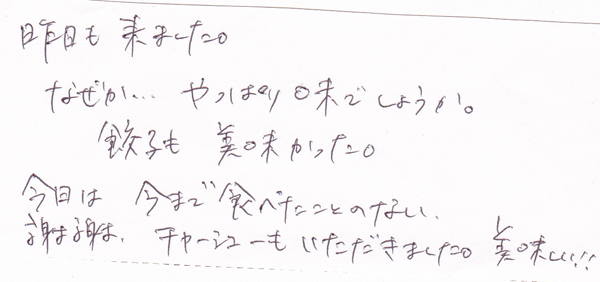 昨日も来ました。
なぜか… やっぱり味でしょうか。
餃子も 美味かった。
今日は 今まで食べたことのない、
謝謝、チャーシューもいただきました。美味しい!!